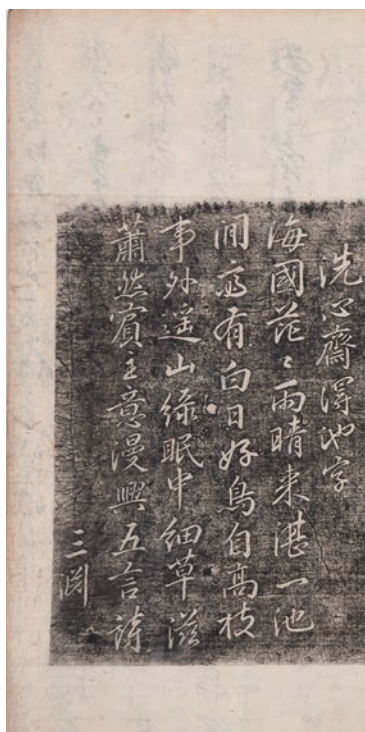 洗心齋得池字
海國茫〻雨晴来湛一池
閒齋有白日好鳥自高枝
事外遥山綠眠中細草滋
蕭然賓主意漫興五言詩
三淵